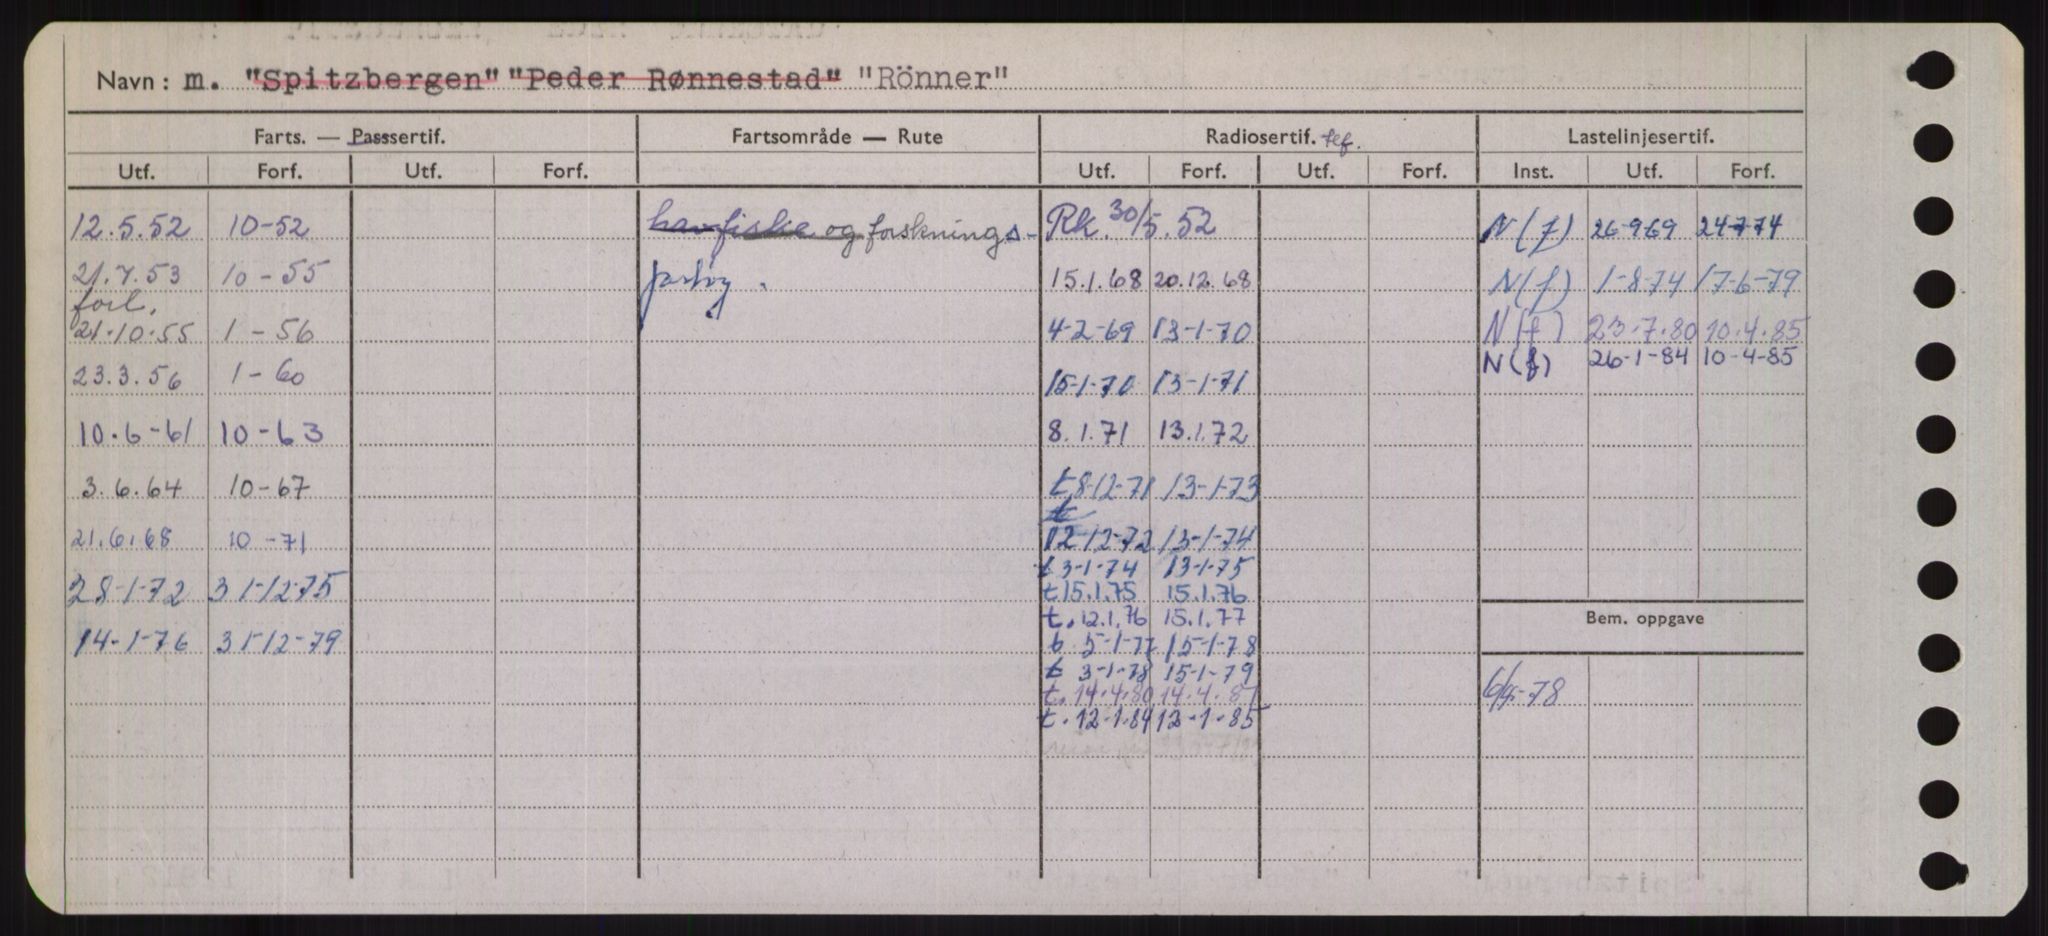 Navn: m. "Spitzbergen" "Peder Rønnestad" "Rönner"
Farts. — Passsertif. Fartsområde — Rute Radiosertif. tlf. Lastelinjesertif.
Utf. Forf. Utf. Forf. Utf. Forf. Utf. Forf. Inst. Utf. Forf.
12.5.52 10-52 havfiske og forsknings- Rk. 30/5.52 N(f) 26-9-69 24-7-74
21.7.53 10-55 15.1.68 20.12.68 N(f) 1-8-74 17-6-79
21-10-55 1-56 4-2-69 13-1-70 N(f) 23.7.80 10.4.85
N(f) 26-1-84 10-4-85
23.3.56 1-60 15-1-70 13-1-71
10.6-61 10-63 8.1.71 13.1.72
3.6.64 10-67 t 8-12-71 13-1-73
t
21.6.68 10-71 12-12-72 13-1-74
t 3-1-74 13-1-75
28-1-72 31-12-75 t 15.1.75 15.1.76
t. 12.1.76 15.1.77
Bem. oppgave
14-1-76 31-12-79 t 5-1-77 15-1-78
t 3-1-78 15-1-79
t. 14.4.80 14.4.81
t. 12-1-84 12-1-85